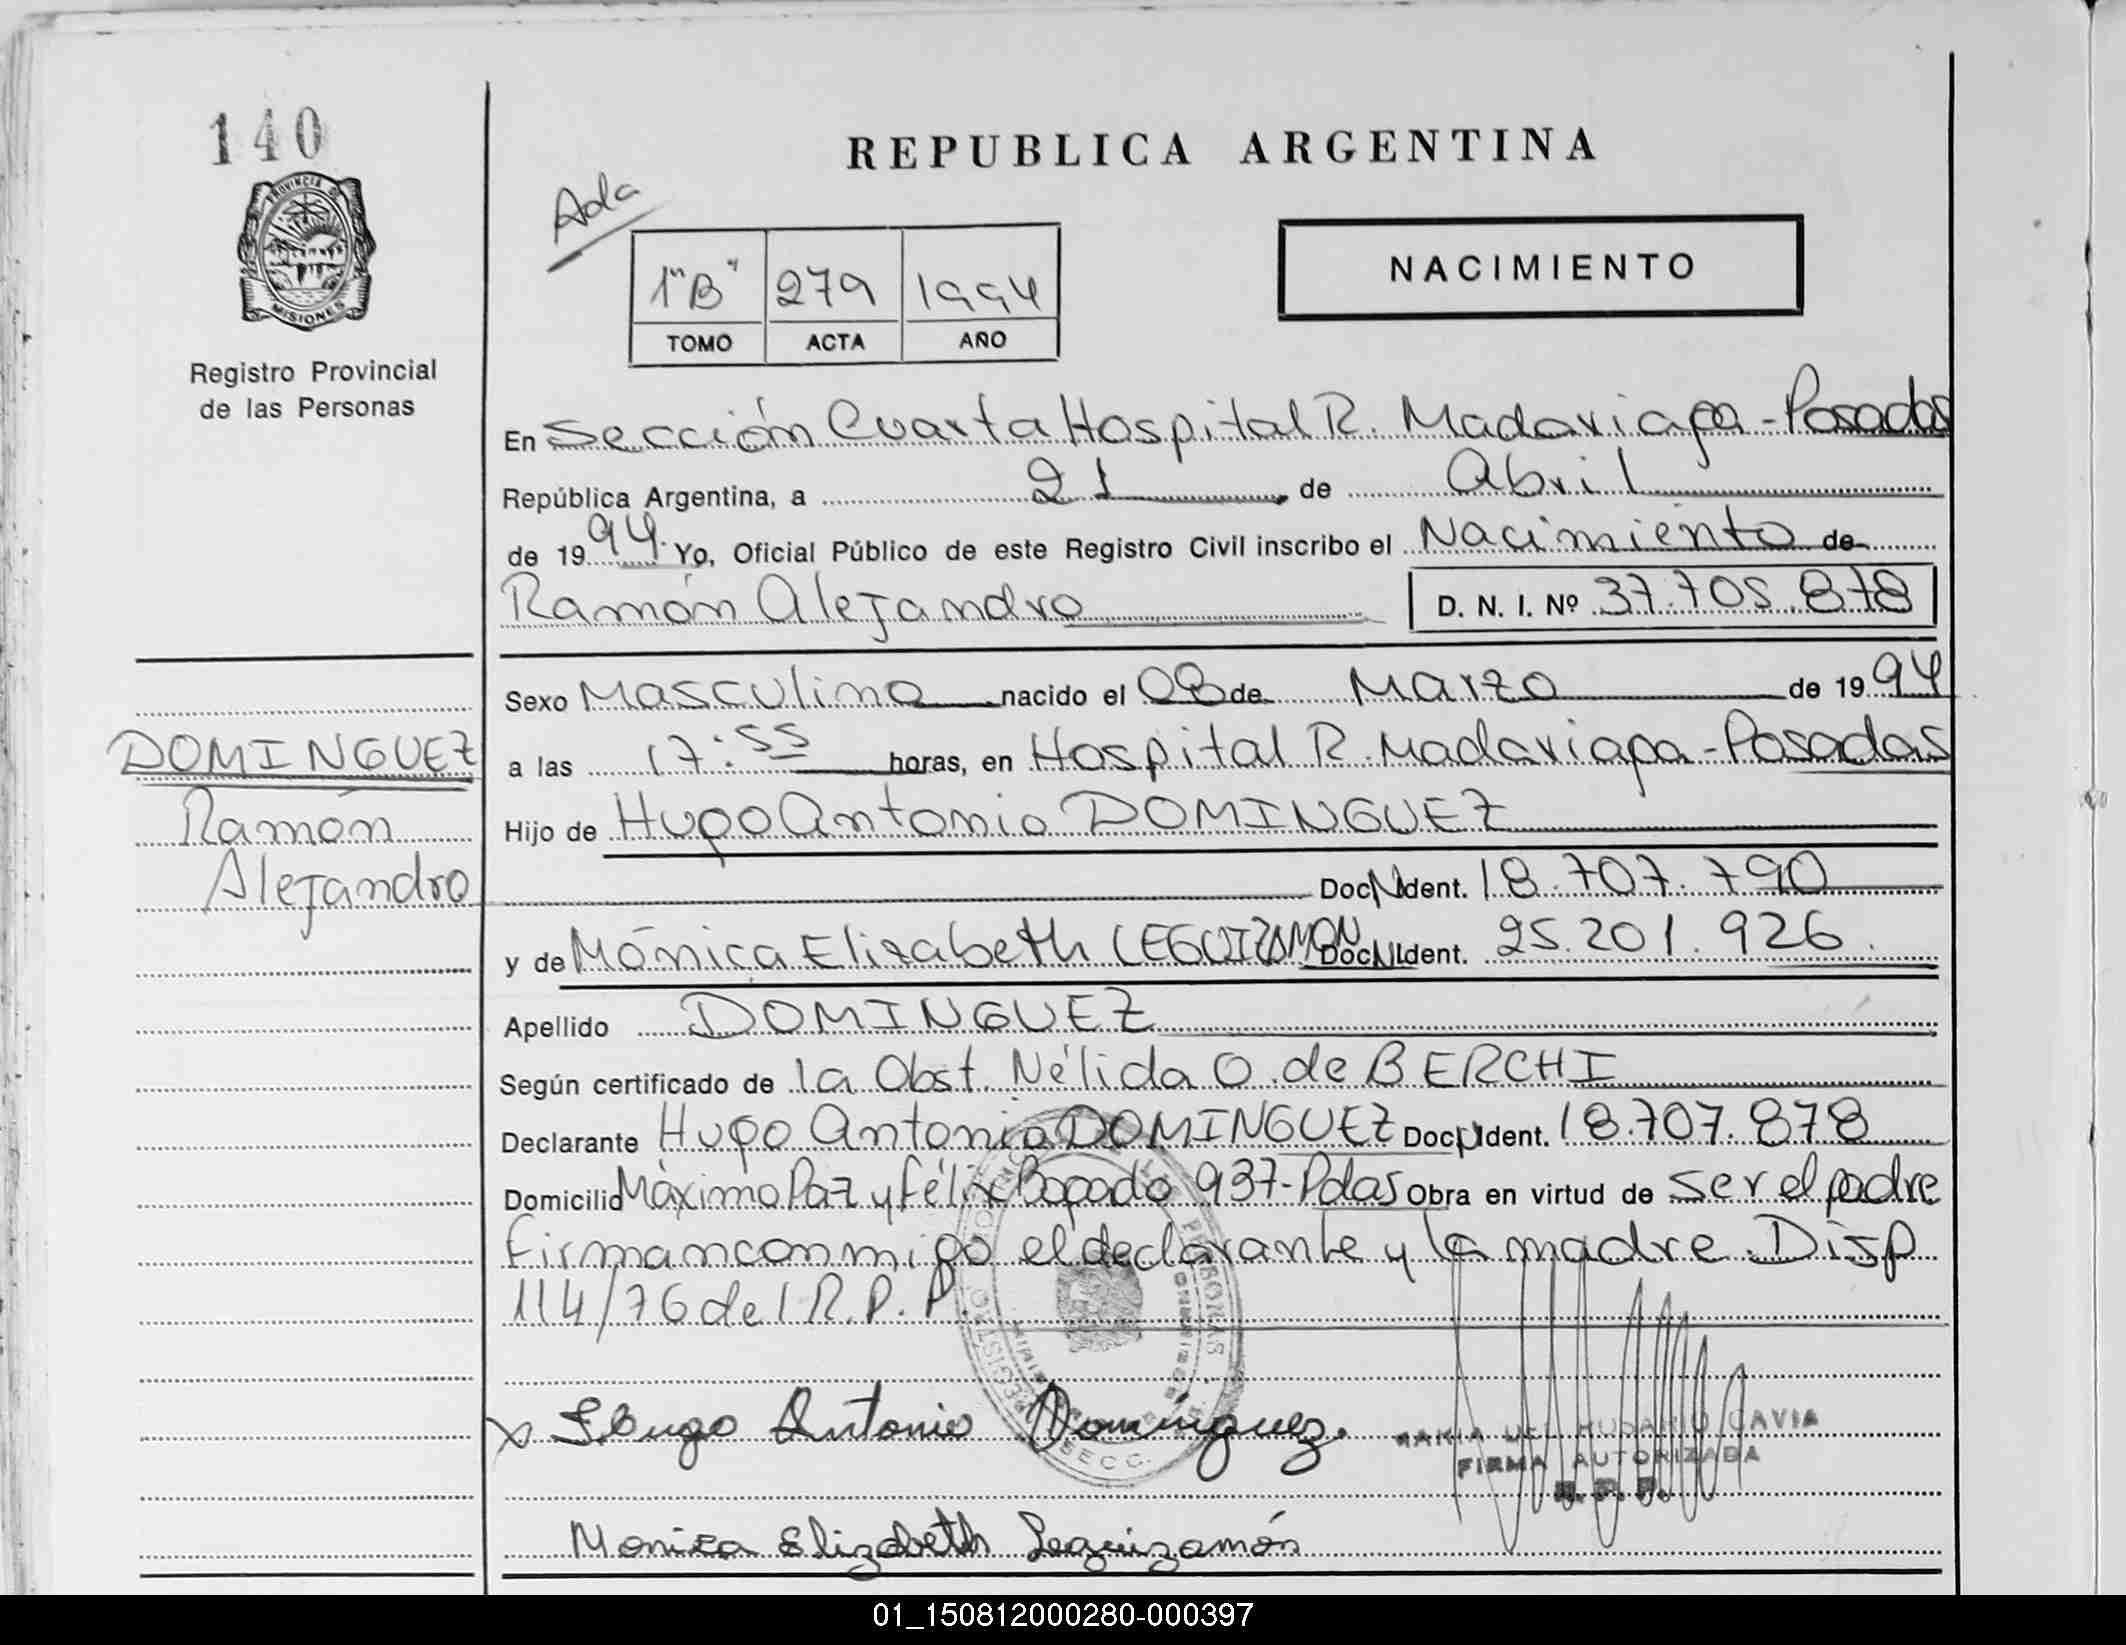 140
PROVINCIA DE
MISIONES
Registro Provincial
de las Personas
REPUBLICA ARGENTINA
Ada
1"B" 279 1994
TOMO ACTA AÑO
NACIMIENTO
En Sección Cuarta Hospital R. Madariaga - Posadas
República Argentina, a 21 de Abril
de 1994. Yo, Oficial Público de este Registro Civil inscribo el Nacimiento de
Ramón Alejandro D. N. I. Nº 37.705.878
Sexo Masculino nacido el 08 de Marzo de 1994
a las 17:55 horas, en Hospital R. Madariaga - Posadas
DOMINGUEZ
Ramón
Alejandro
Hijo de Hugo Antonio DOMINGUEZ
Doc. N. Ident. 18.707.790
y de Mónica Elizabeth LEGUIZAMON Doc. N. Ident. 25.201.926.
Apellido DOMINGUEZ
Según certificado de la Obst. Nélida O. de BERCHI
Declarante Hugo Antonio DOMINGUEZ Doc. N. Ident. 18.707.878
Domicilio Máximo Paz y Félix Bogado 937-Pdas Obra en virtud de ser el padre
firman conmigo el declarante y la madre. Disp
114/76 del R.P.P.
x Hugo Antonio Domínguez.
MARIA DEL ROSARIO GAVIA
FIRMA AUTORIZADA
R. P. P.
Monica Elizabeth Leguizamón
01_150812000280-000397